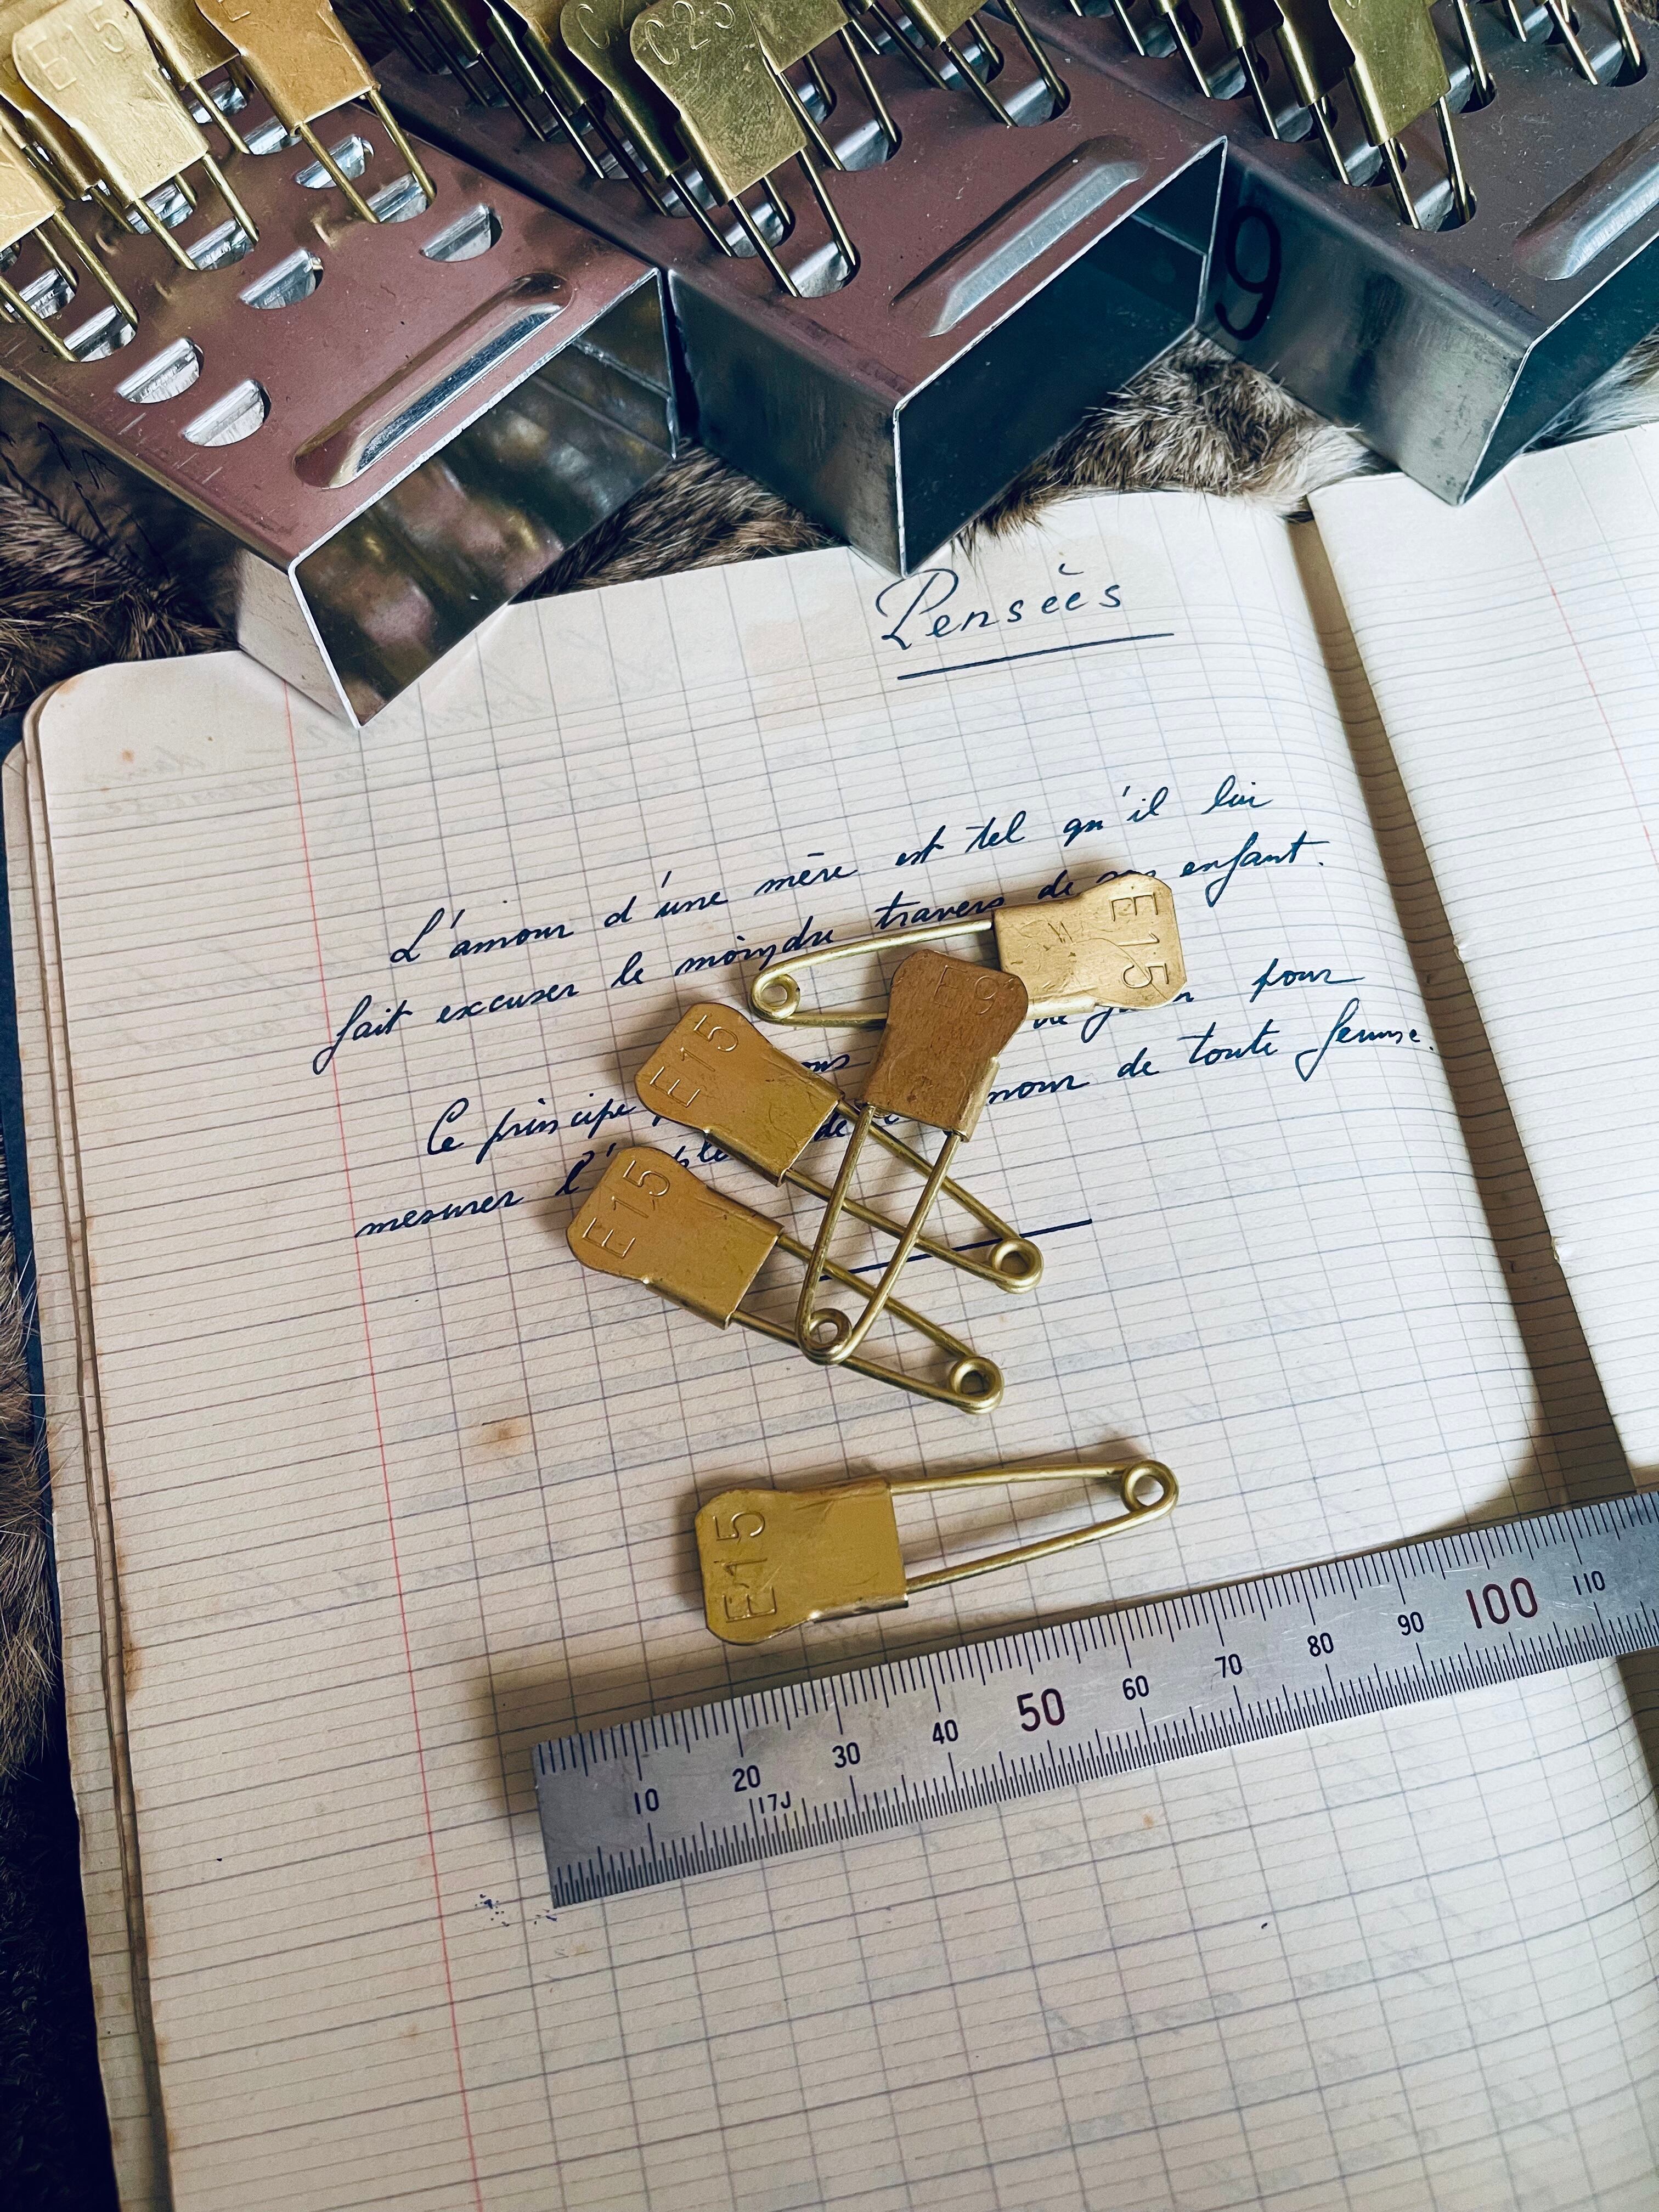 E15
C23
9
Pensées
L'amour d'une mère est tel qu'il lui
fait excuser le moindre travers de son enfant.
E15
E 9
pour
E15
Ce principe de toute femme.
mesurer l'
E15
E15
10 20 30 40 50 60 70 80 90 100 110
17J